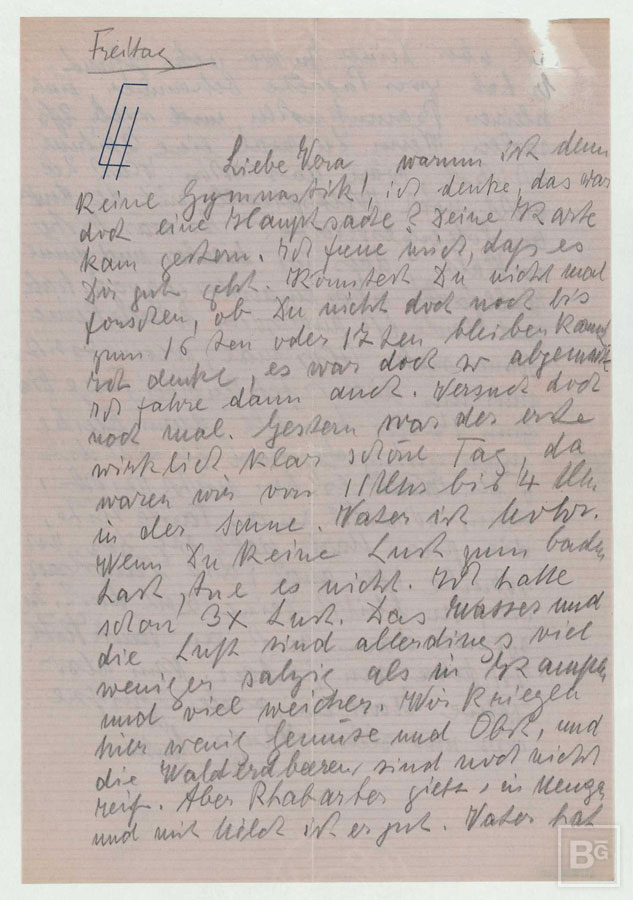 Freitag
Liebe Vera warum ist denn
keine Gymnastik!, ich denke, das war
doch eine Hauptsache? Deine Karte
kam gestern. Ich freue mich, dass es
Dir gut geht. Könntest Du nicht mal
forschen, ob Du nicht doch noch bis
zum 16 ten oder 17ten bleiben kannst
Ich denke, es war doch so abgemacht
ich fahre dann auch. Versuch doch
noch mal. Gestern war der erste
wirklich klar schöne Tag, da
waren wir von 11 Uhr bis 4 Uhr
in der Sonne. Vater ist
Wenn Du keine Lust zum baden
hast, tue es nicht. Ich hatte
schon 3x Lust. Das Wasser und
die Luft sind allerdings viel
weniger salzig als in Kampen
und viel weicher. Wir kriegen
hier wenig Gemüse und Obst, und
die Walderdbeeren, sind noch nicht
reif. Aber Rhabarber giebt's in Menge
und mit Milch ist er gut. Vater hat
BG